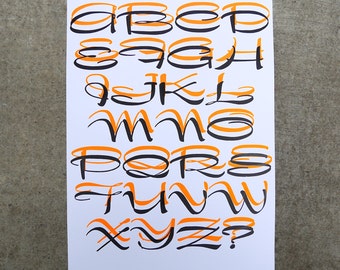 ABCD
EFGH
IJKL
MNO
PQRS
TUVW
XYZ?